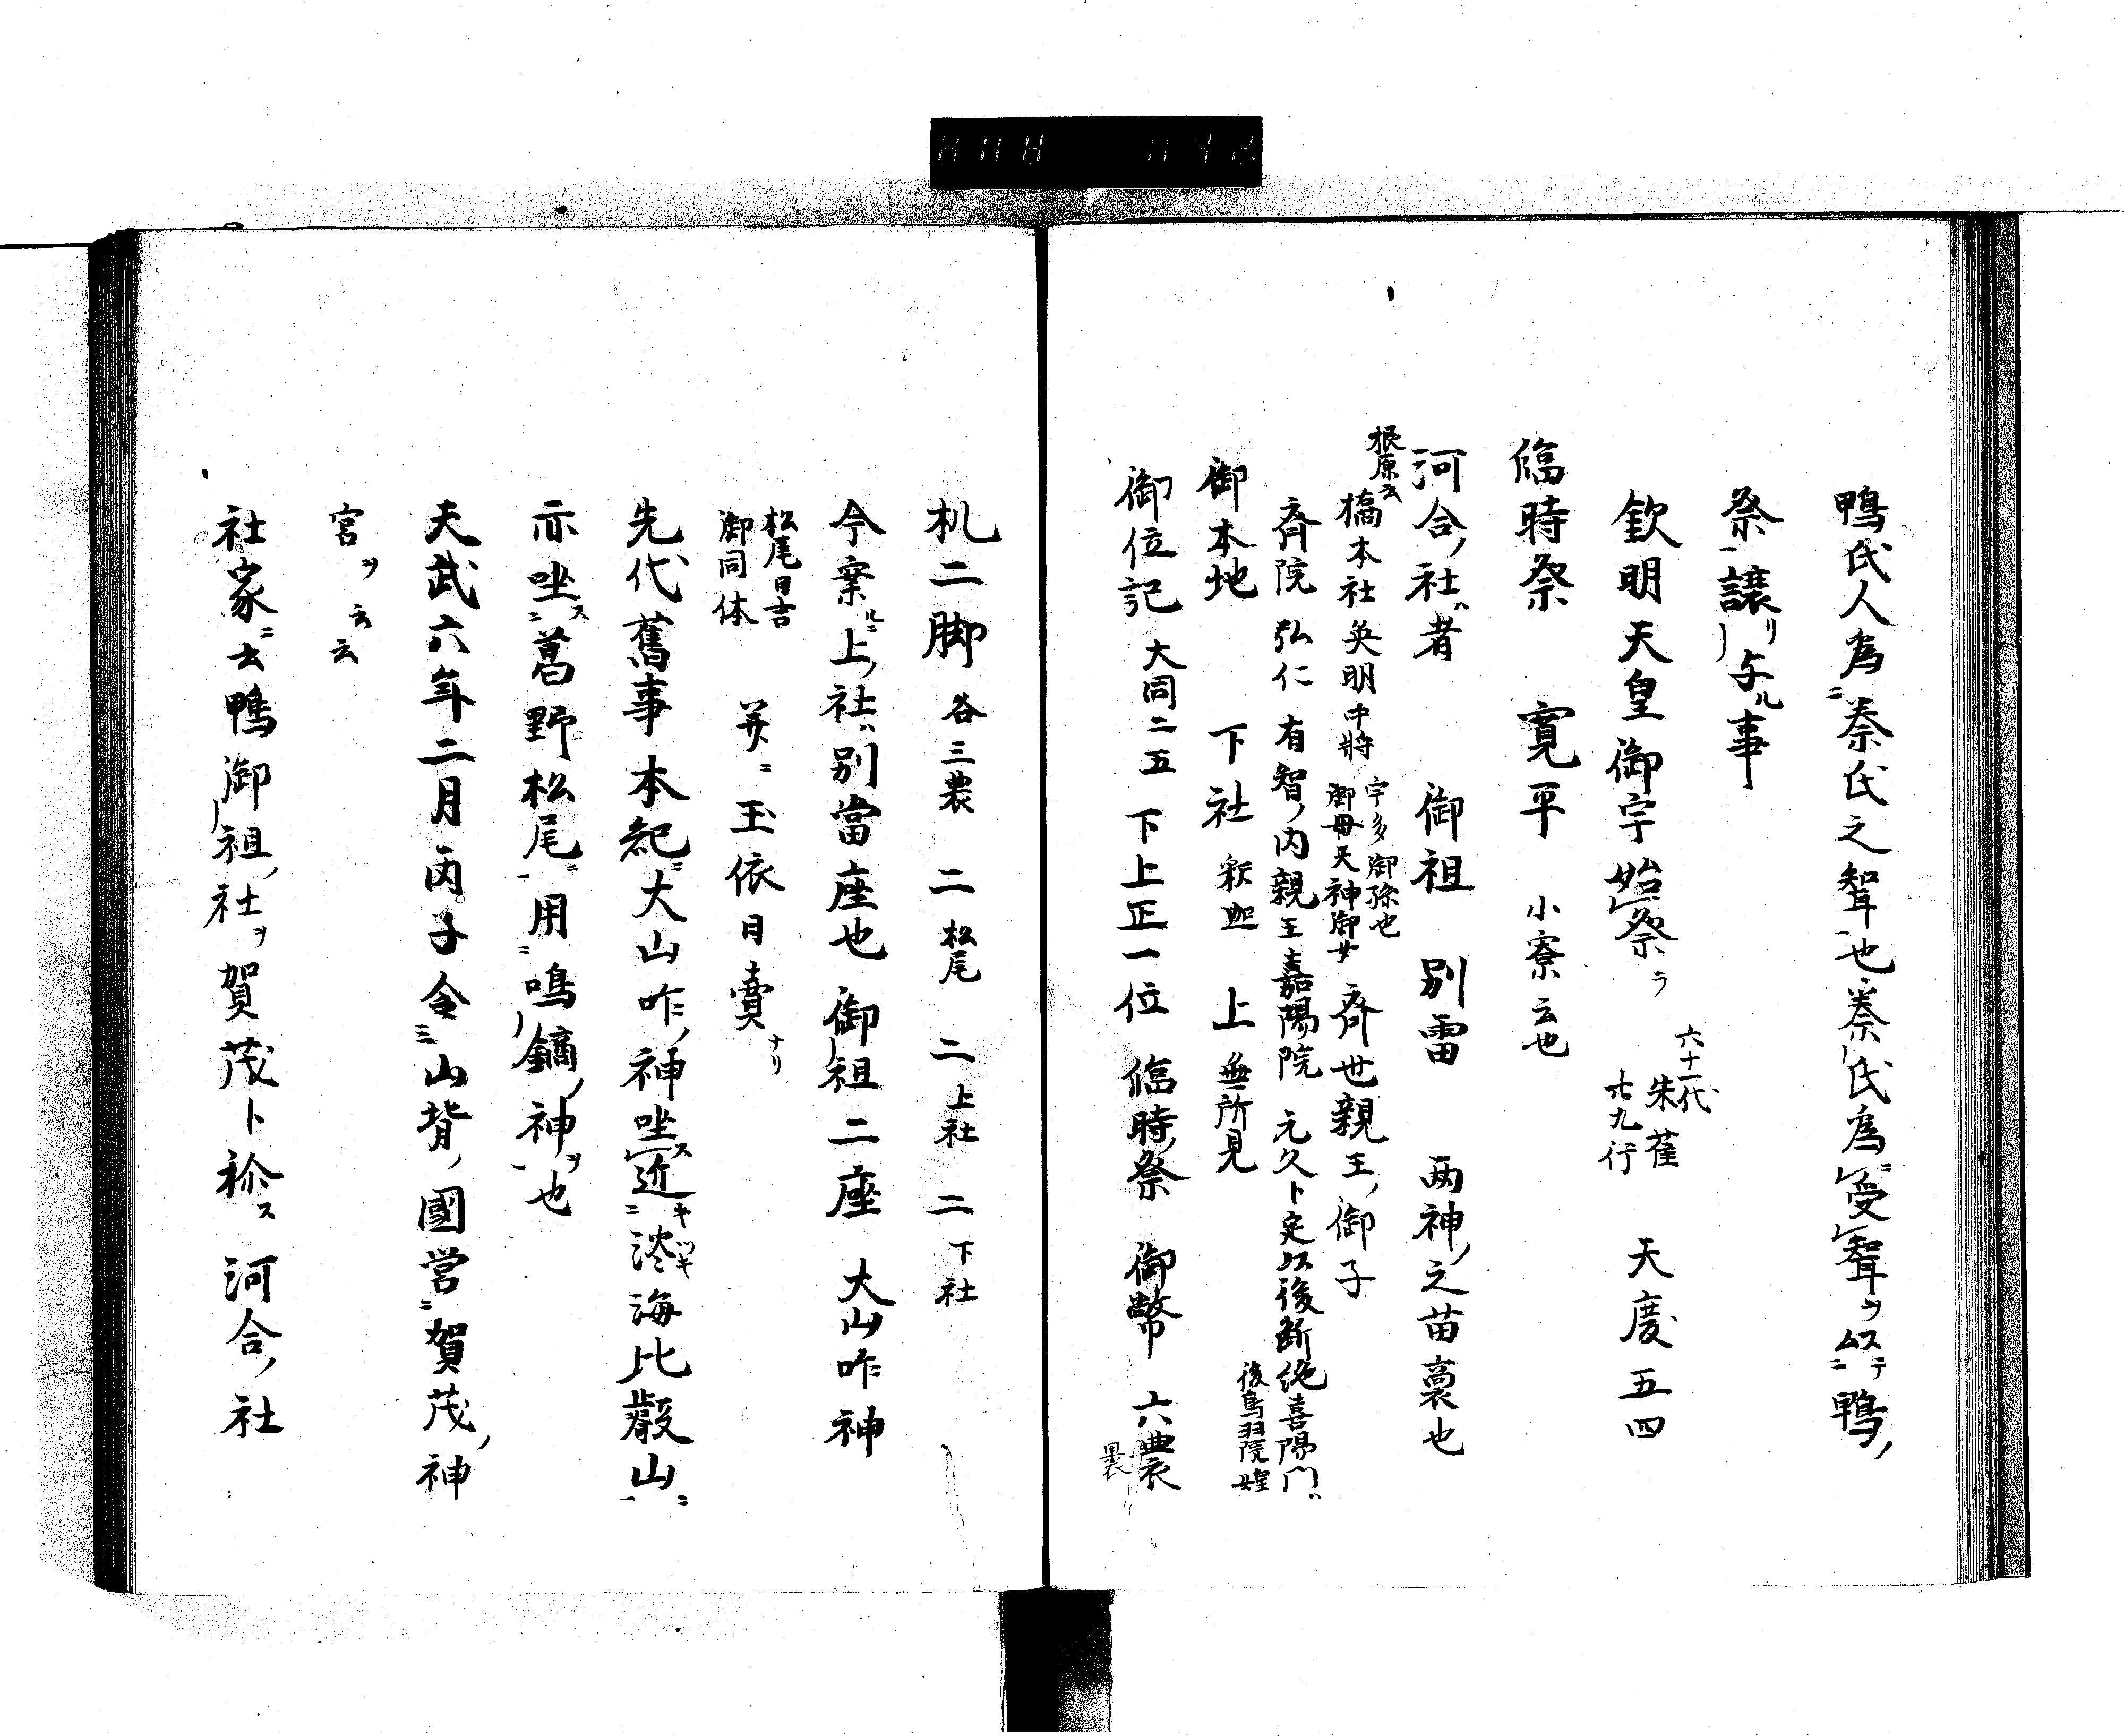 鴨氏人為ニ秦氏之聟也秦氏為ニ受聟ヲ以テニ鴨ノ
祭譲リ与ル事
欽明天皇御宇始祭ラ 六十一代 朱雀 廿九行 天慶五四
臨時祭 寛平 小寮云也
河合ノ社ハ者 御祖 別雷 両神ノ之苗裔也
根原云
橋本社 英明中将 宇多御孫也 御母天神御女 斉世親王ノ御子
斉院 弘仁 有智ノ内親王 嘉陽院 元久ト定以後断絶 喜陽門 後鳥羽院 媓
御本地 下社 釈迦 上 無所見
御位記 大同二五 下上正一位 臨時ノ祭 御幣 六裹
机二脚 各三裹 二 松尾 二 上社 二 下社
今案ルニ上ノ社ハ別當座也 御祖二座 大山咋神
松尾日吉 御同体 并ニ玉依日賣ナリ
先代舊事本紀ニ大山咋ノ神坐ス近キツギ淡海比叡山ニ
亦坐スニ葛野松尾ニ用ニ鳴鏑ノ神ヲ也
天武六年二月丙子令ニ山背ノ國営ニ賀茂ノ神
宮ヲ云云
社家ニ云鴨御祖ノ社ヲ賀茂ト称ス河合ノ社